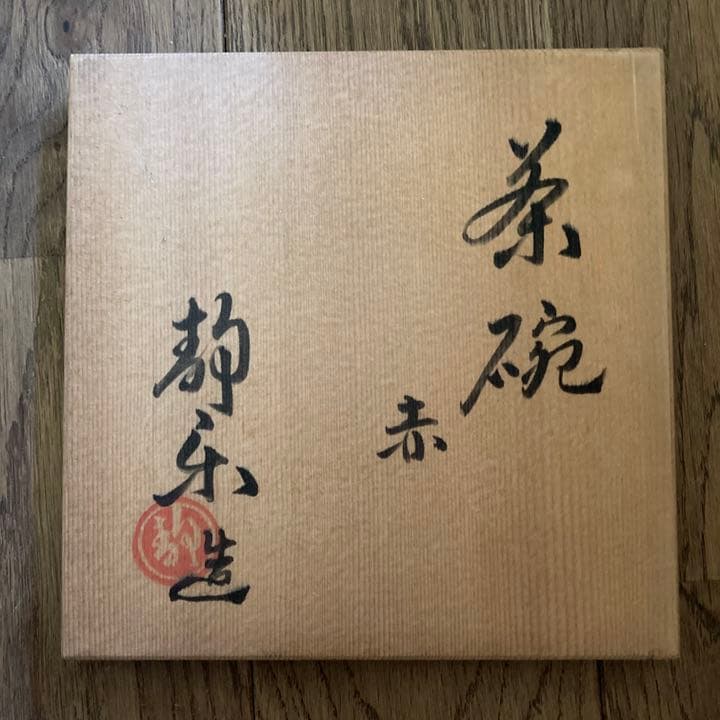 茶碗
赤
静楽造
静